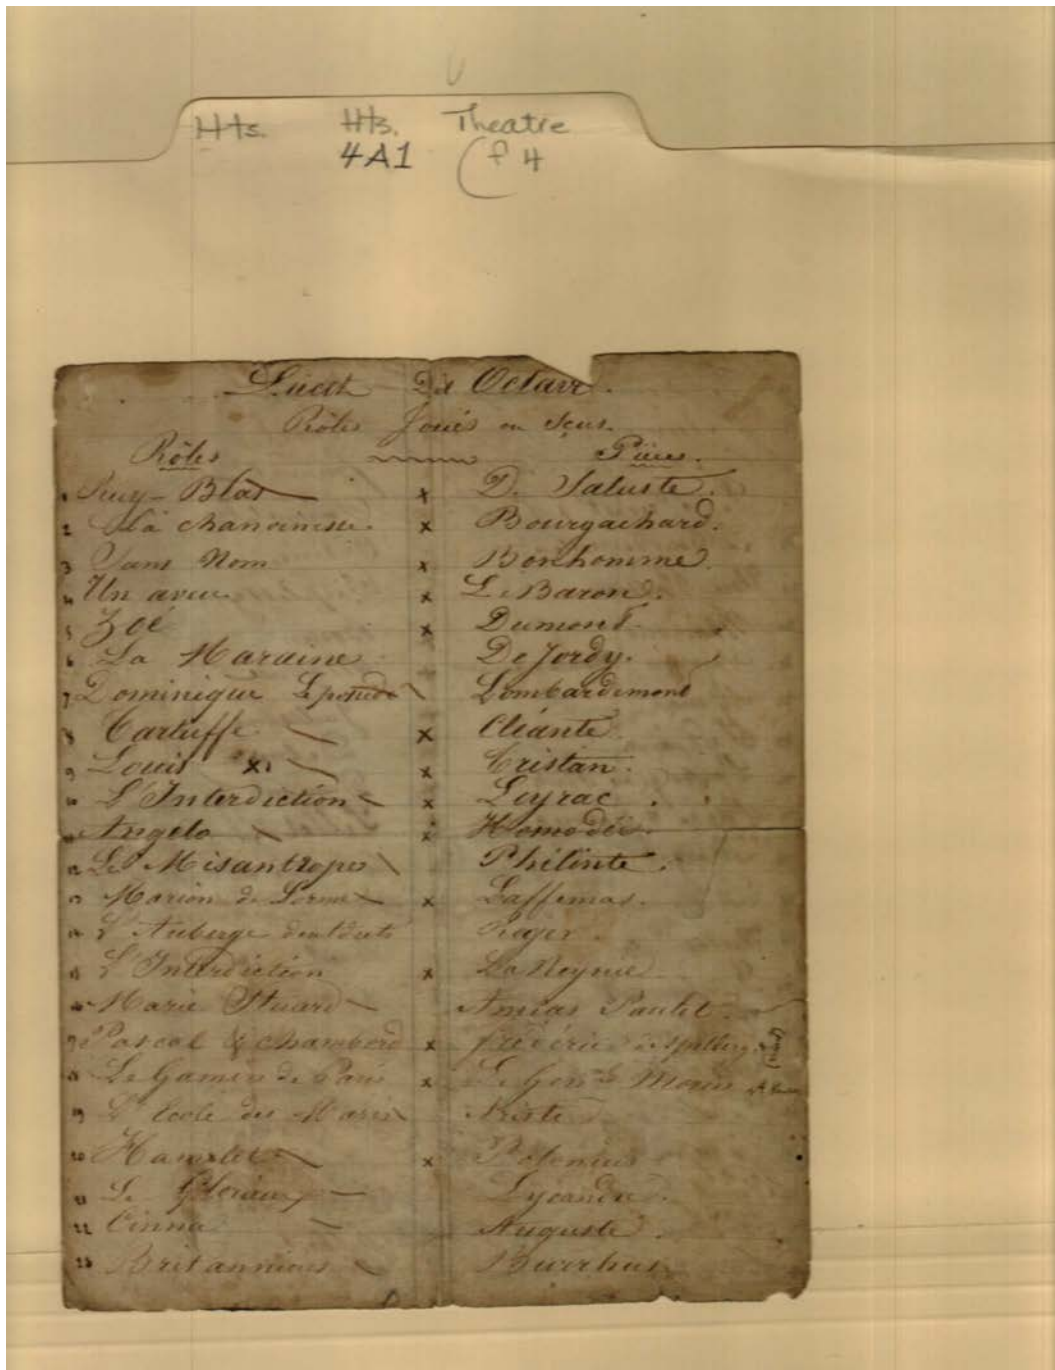 Hts. Hts. Theatre
4A1 (f 4
Dit Octave.
Rôles Joués ou Sçus.
Rôles Pièces.
1 Ruy-Blas x D. Saluste.
2 La chanoinesse. x Bourgachard.
3 Sans Nom x Bonhomme.
4 Un aveu x Le Baron.
5 Zoé x Dumont.
6 La Maraine De Jordy.
7 Dominique Le possédé Lombardemont
8 Tartuffe x Cléante.
9 Louis XI x Tristan.
10 L'Interdiction x Leyrac.
11 Angelo x Homodéi.
12 Le Misantrope Philinte.
13 Marion de Lorme x Laffemas.
14 L'Auberge des Adrets Roger.
15 L'Interdiction x La Reynie
16 Marie Stuard Amias Paulet.
17 Pascal & Chambord x frédéric
18 Le Gamin de Paris x Le Gén. Morin
19 L'école des Maris Ariste
20 Hamlet x Polonius
21 Le Glorieux Lycandre.
22 Cinna Auguste.
23 Britannicus Burrhus